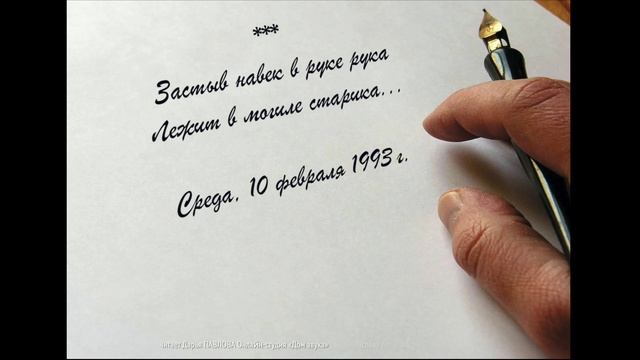 ***
Застыв навек в руке рука
Лежит в могиле старика...
Среда. 10 февраля 1993 г.
Читает Дарья ПАВЛОВА Онлайн-студия «Дом звука»